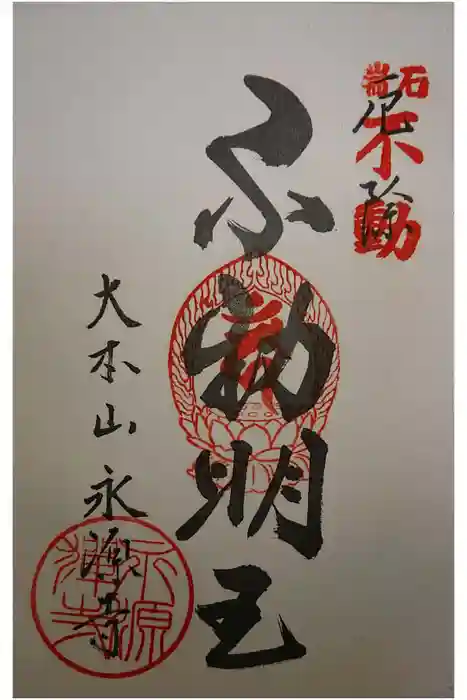 厄除
不動
不動明王
大本山永源寺
永源
禪寺